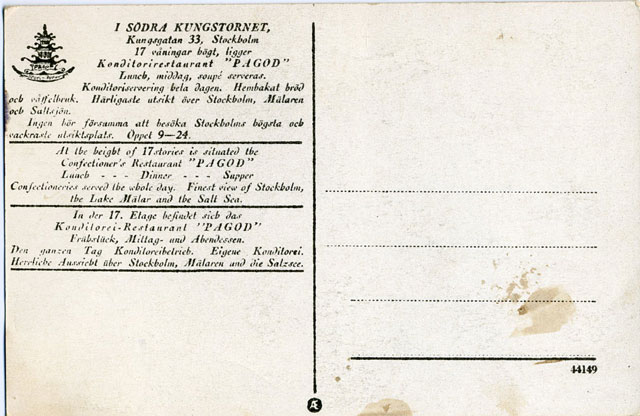 I SÖDRA KUNGSTORNET,
Kungsgatan 33, Stockholm
17 våningar högt, ligger
Konditorirestaurant "PAGOD"
Lunch, middag, soupé serveras.
Konditoriservering hela dagen. Hembakat bröd
och våffelbruk. Härligaste utsikt över Stockholm, Mälaren
och Saltsjön.
Ingen bör försumma att besöka Stockholms högsta och
vackraste utsiktsplats. Öppet 9—24.
At the height of 17 stories is situated the
Confectioner's Restaurant "PAGOD"
Lunch - - - Dinner - - - Supper
Confectioneries served the whole day. Finest view of Stockholm,
the Lake Mälar and the Salt Sea.
In der 17. Etage befindet sich das
Konditorei-Restaurant "PAGOD"
Frühstück, Mittag- und Abendessen.
Den ganzen Tag Konditoreibetrieb. Eigene Konditorei.
Herrliche Aussicht über Stockholm, Mälaren und die Salzsee.
44149
Æ